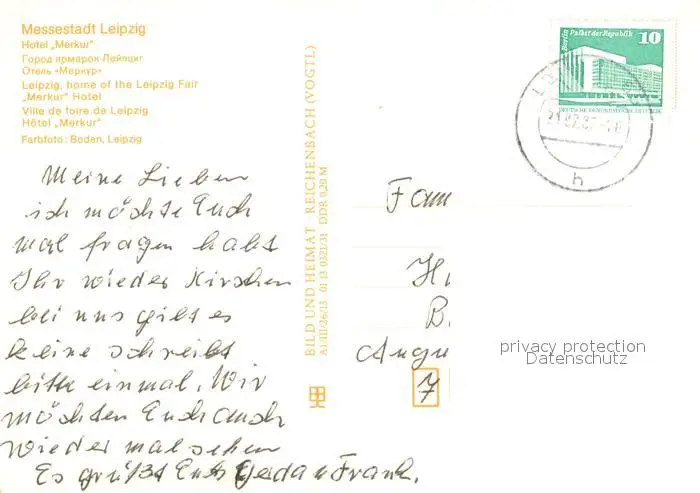 Messestadt Leipzig
Hotel „Merkur"
Город ярмарок Лейпциг
Отель «Меркур»
Leipzig, home of the Leipzig Fair
„Merkur" Hotel
Ville de foire de Leipzig
Hôtel „Merkur"
Farbfoto: Boden, Leipzig
Meine Lieben
ich möchte Euch
mal fragen habt
Ihr wieder Kirschen
bei uns gibt es
keine schreibt
bitte einmal. Wir
möchten Euch auch
wieder mal sehen
Es grüßt Euch Gerda u Frank.
BILD UND HEIMAT REICHENBACH (VOGTL)
A1/III/26/13 01 13 0321/31 DDR 0,20 M
Berlin Palast der Republik
10
DEUTSCHE DEMOKRATISCHE REPUBLIK
h
Fam
H
B
Augu
7
privacy protection
Datenschutz